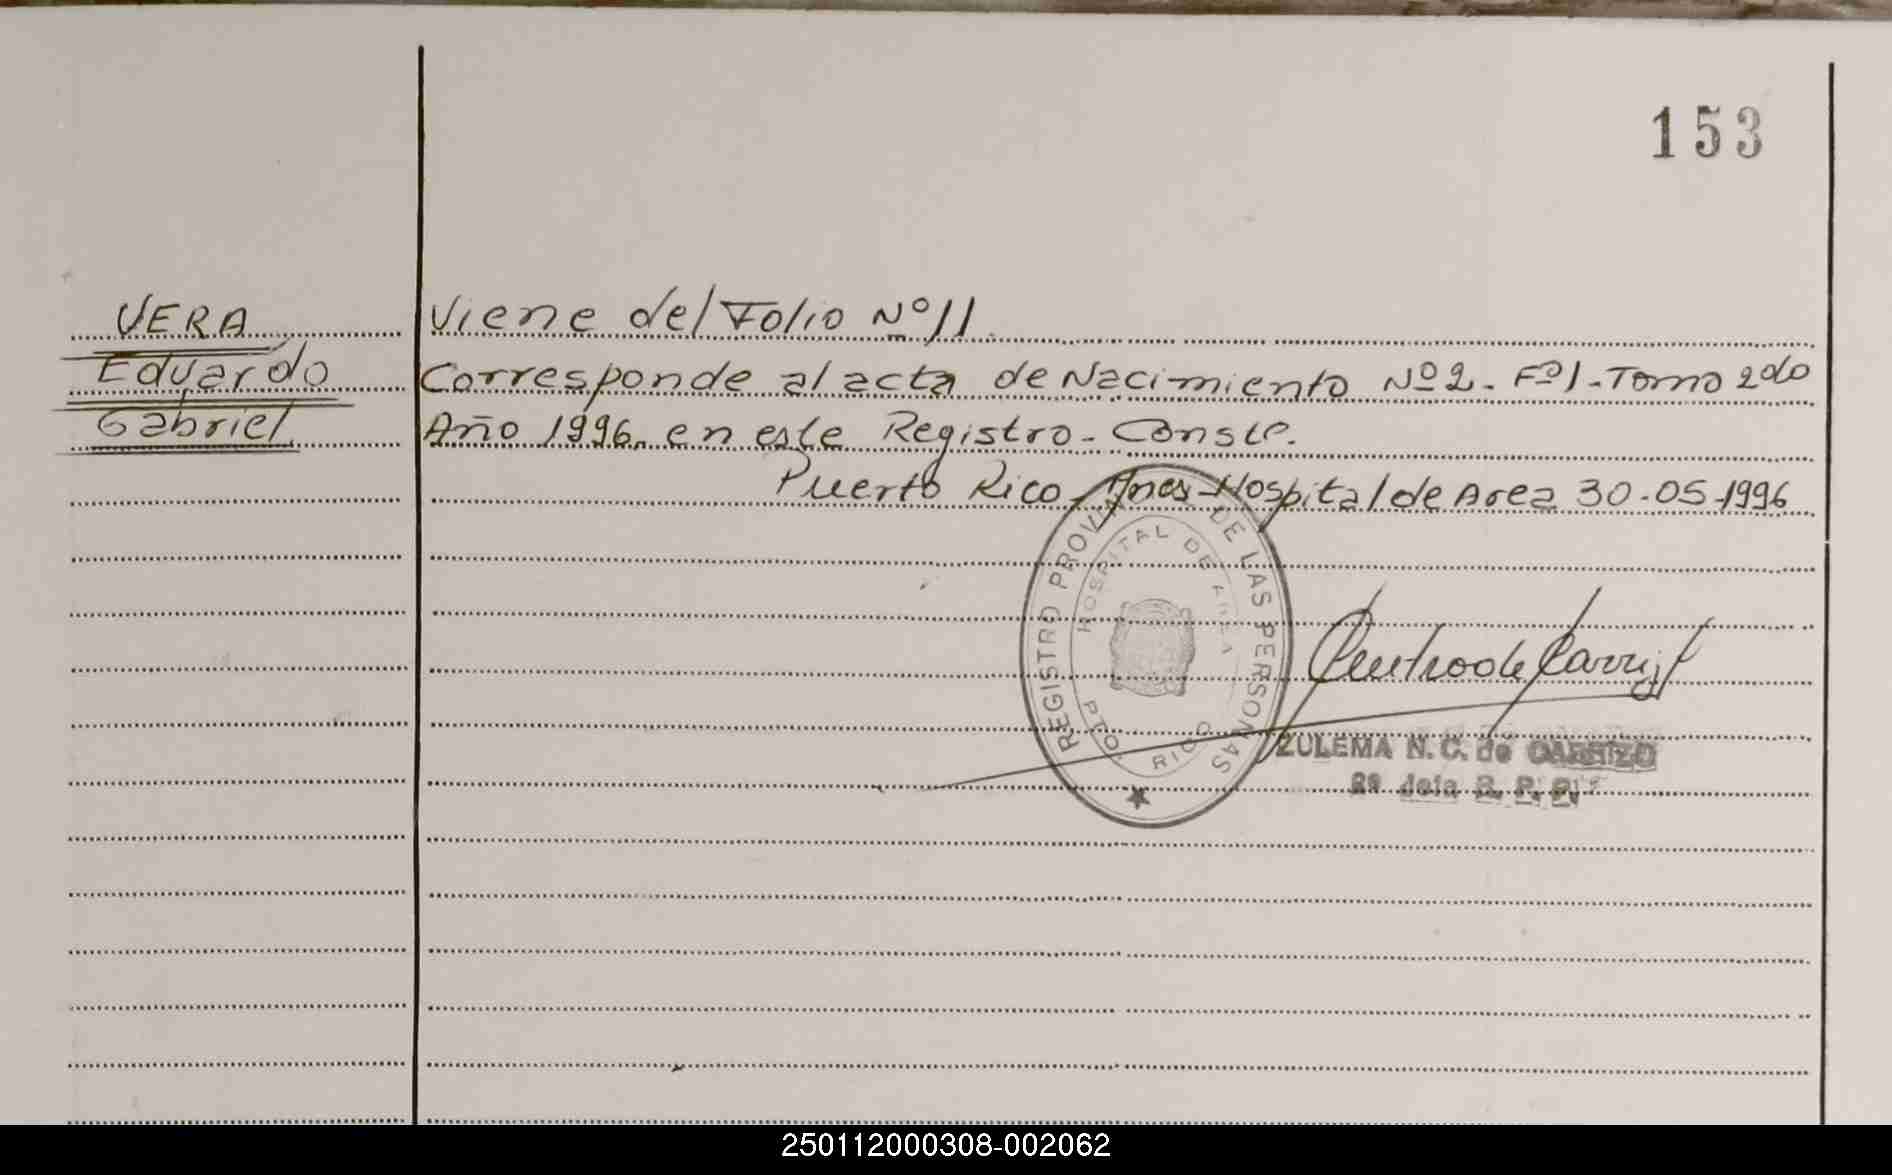 153
VERA
Eduardo
Gabriel
Viene del Folio Nº 11
Corresponde al acta de Nacimiento Nº 2 - Fº 1 - Tomo 2do
Año 1996. en este Registro - Conste.
Puerto Rico - Mnes - Hospital de Area 30-05-1996
REGISTRO PROVINCIAL DE LAS PERSONAS
HOSPITAL DE AREA
PTO. RICO
ZULEMA N. C. de CARRIZO
R. P. P.
250112000308-002062